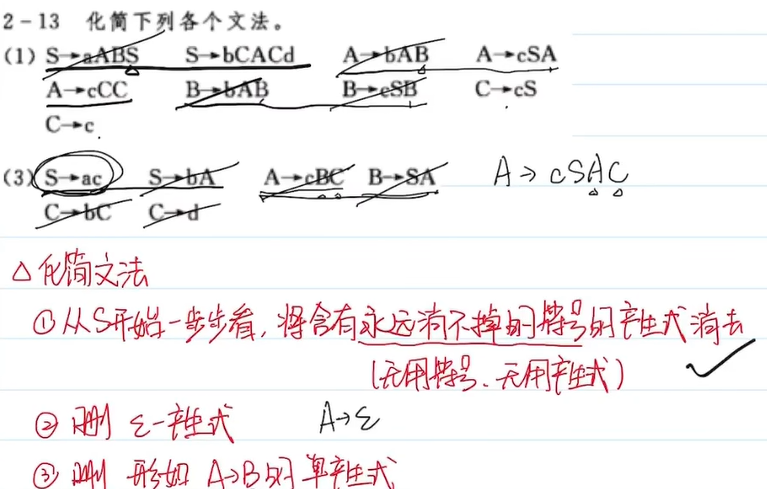 2-13 化简下列各个文法。
(1) S→aABS S→bCACd A→bAB A→cSA
A→cCC B→bAB B→cSB C→cS
C→c
(3) S→ac S→bA A→cBC B→SA A→cSAC
C→bC C→d
△化简文法
①从S开始一步步看，将含有永远消不掉的符号的产生式消去
(无用符号、无用产生式) ✓
② 删 ε-产生式 A→ε
③ 删 形如 A→B的单产生式